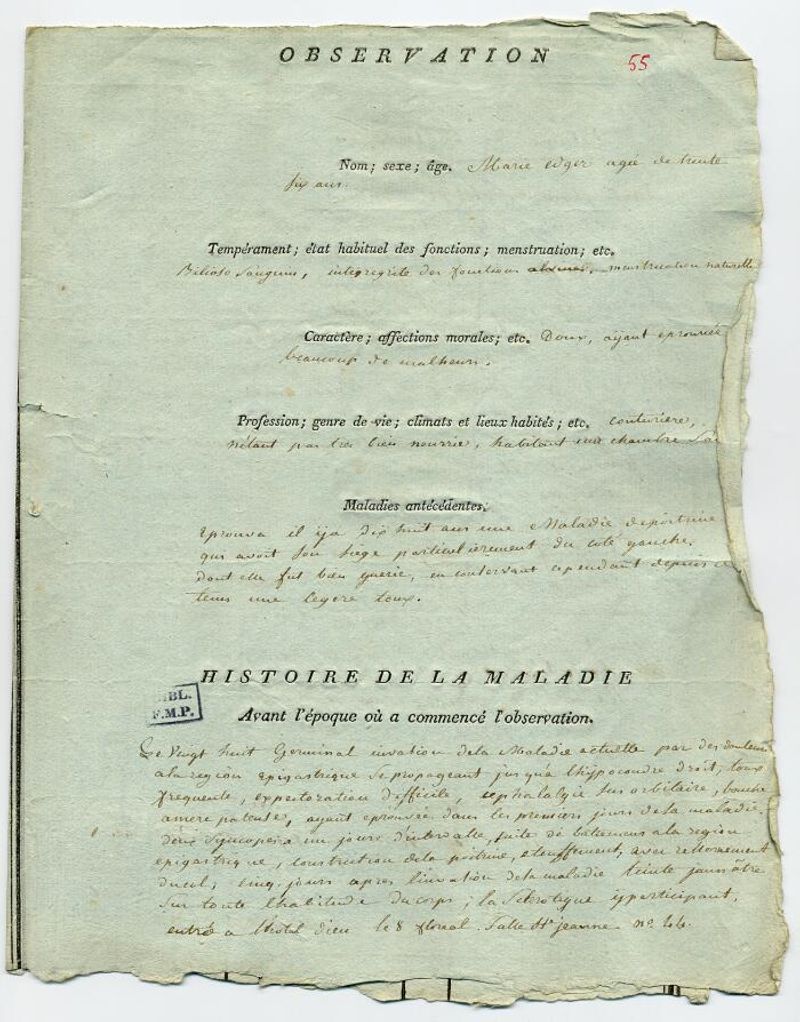 OBSERVATION
55
Nom; sexe; âge. Marie edger agée de trente
six ans.
Tempérament; état habituel des fonctions; menstruation; etc.
Bilioso Sanguin, integregrité des fonctions menstruation naturelle
Caractère; affections morales; etc. Doux, aÿant eprouvée
beaucoup de malheurs.
Profession; genre de vie; climats et lieux habités; etc. couturière,
nétant pas tres bien nourrie, habitant une chambre
Maladies antécédentes.
eprouva il ÿa dix huit ans une Maladie depoitrine
qui avoit son siege particulièrement du coté gauche,
dont elle fut bien guerie, en conservant cependant depuis ce
tems une legere toux.
HISTOIRE DE LA MALADIE
BIBL.
F.M.P.
Avant l'époque où a commencé l'observation.
Le Vingt huit Germinal invation dela Maladie actuelle par des douleurs
ala region epigastrique se propageant jusqu'a lhÿpocondre droit, toux
frequente, expectoration difficile, cephalalgie sus orbitaire, bouche
amere pateuse, aÿant eprouvée dans les premiers jours dela maladie.
deux Sÿncopes a un jours d'intervalle, suite de batemens ala region
epigastrique, constriction dela poitrine, etouffement, avec
cinq jours apres linvation dela maladie teinte jaunâtre
sur toute lhabitude du corps; la Sclerotique ÿ participant,
entrée a lhotel dieu le 8 floreal. Salle St jeanne no. 44.